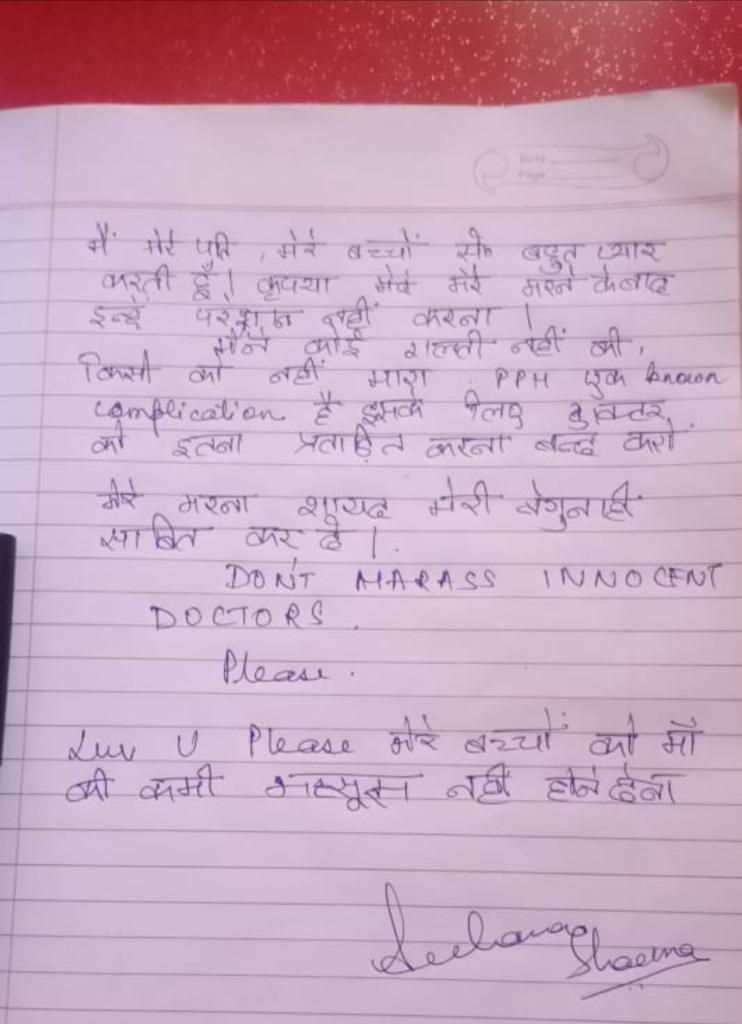 Date
Page
मैं मेरे पति, मेरे बच्चों से बहुत प्यार
करती हूँ। कृपया मेरे मेरे मरने के बाद
इन्हें परेशान नहीं करना।
मैंने कोई गलती नहीं की,
किसी को नहीं मारा. PPH एक known
complication है इसके लिए डॉक्टर
को इतना प्रताड़ित करना बन्द करो
मेरे मरना शायद मेरी बेगुनाही
साबित कर दे।
DON'T HARASS INNOCENT
DOCTORS.
Please.
Luv U Please मेरे बच्चों को माँ
की कमी महसूस नहीं होने देना
Sharma